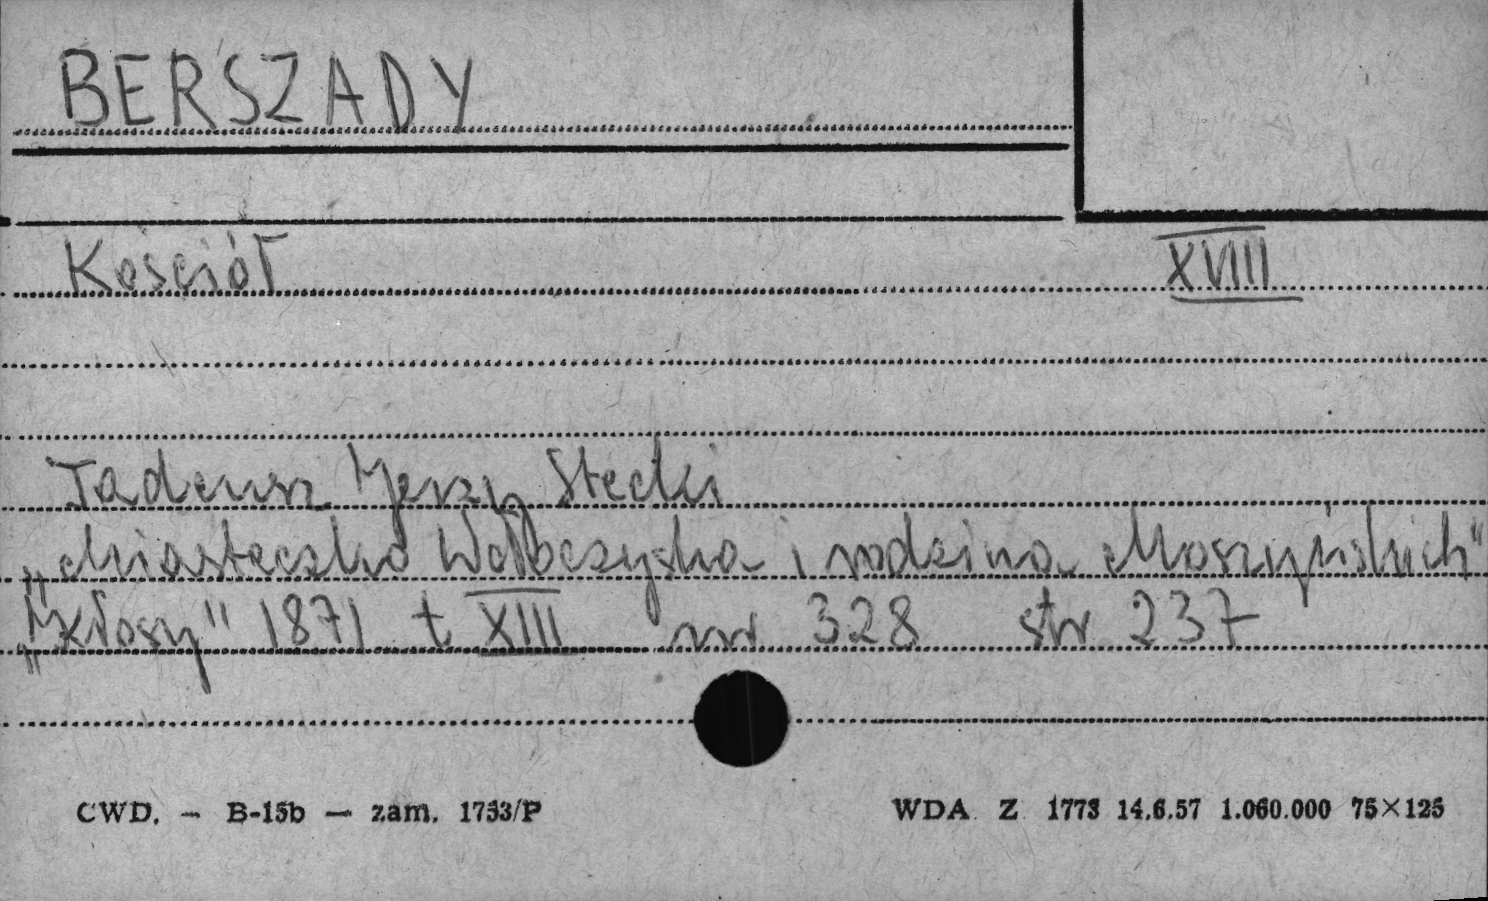 BERSZADY
Kościół XVIII
Tadeusz Jerzy Stecki
„Miasteczko Wołoczyska i rodzina Moszyńskich"
„Kłosy" 1871 t XIII nr 328 str 237
CWD. — B-15b — zam. 1753/P WDA Z 1773 14.6.57 1.060.000 75×125